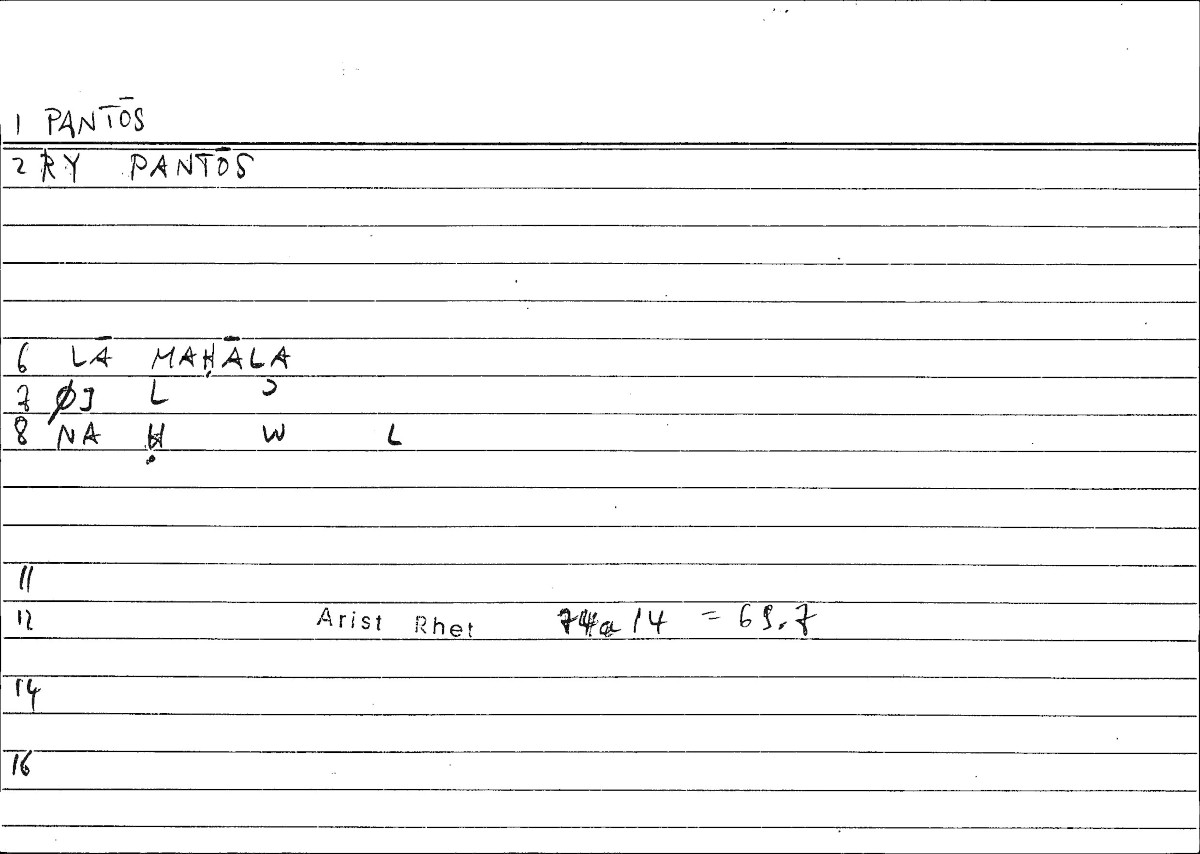 1 PANTŌS
2 RY PANTŌS
6 LĀ MAḤĀLA
7 ØJ L Ɔ
8 NA Ḥ W L
11
12 Arist Rhet 74a14 = 69.7
14
16